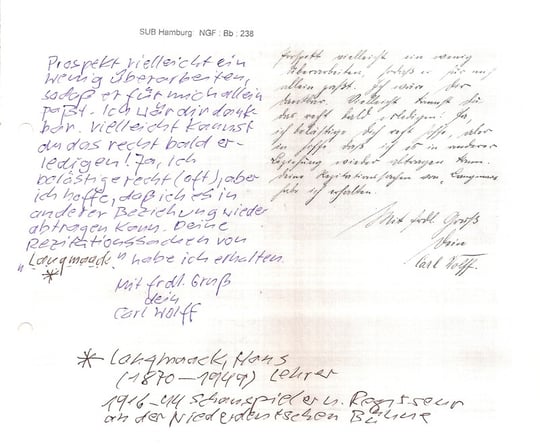 SUB Hamburg NGF : Bb : 238
Prospekt vielleicht ein
wenig überarbeiten,
sodaß er für mich allein
paßt. Ich wär dir dank-
bar. Vielleicht kannst
du das recht bald er-
ledigen! Ja, ich
belästige recht (oft), aber
ich hoffe, daß ich es in
anderer Beziehung wieder
abtragen kann. Deine
Rezitationssachen von
"Langmaade" habe ich erhalten.
*
Mit frdl. Gruß
dein
Carl Wolff
Prospekt vielleicht ein wenig
überarbeiten, sodaß er für mich
allein paßt. Ich wär dir
dankbar. Vielleicht kannst du
das recht bald erledigen! Ja,
ich belästige dich recht oft, aber
ich hoffe daß ich es in anderer
Beziehung wieder abtragen kann.
Deine Rezitationssachen von
habe ich erhalten.
Mit frdl. Gruß
Dein
Carl Wolff.
* Langmaack, Hans
(1870-1949) Lehrer
1916-44 Schauspieler u. Regisseur
an der Niederdeutschen Bühne